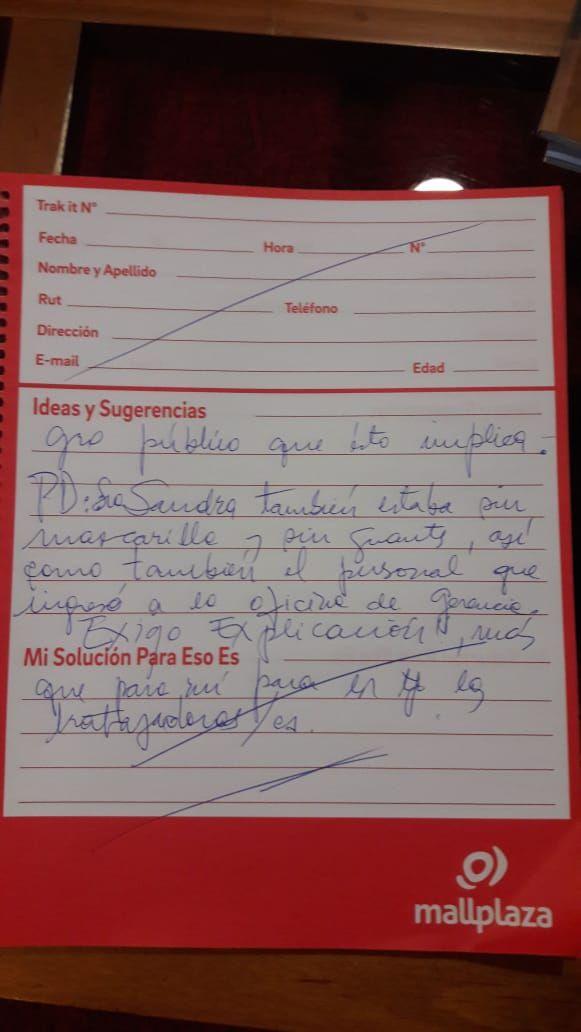 Trak it N°
Fecha Hora N°
Nombre y Apellido
Rut Teléfono
Dirección
E-mail Edad
Ideas y Sugerencias
gro público que ésto implica.
PD: Sra Sandra también estaba sin
mascarilla y sin guants, así
como también el personal que
ingresó a la oficina de Gerencia.
Exigo Explicación!!, más
Mi Solución Para Eso Es
que para mí para
trabajadoras/es.
mallplaza